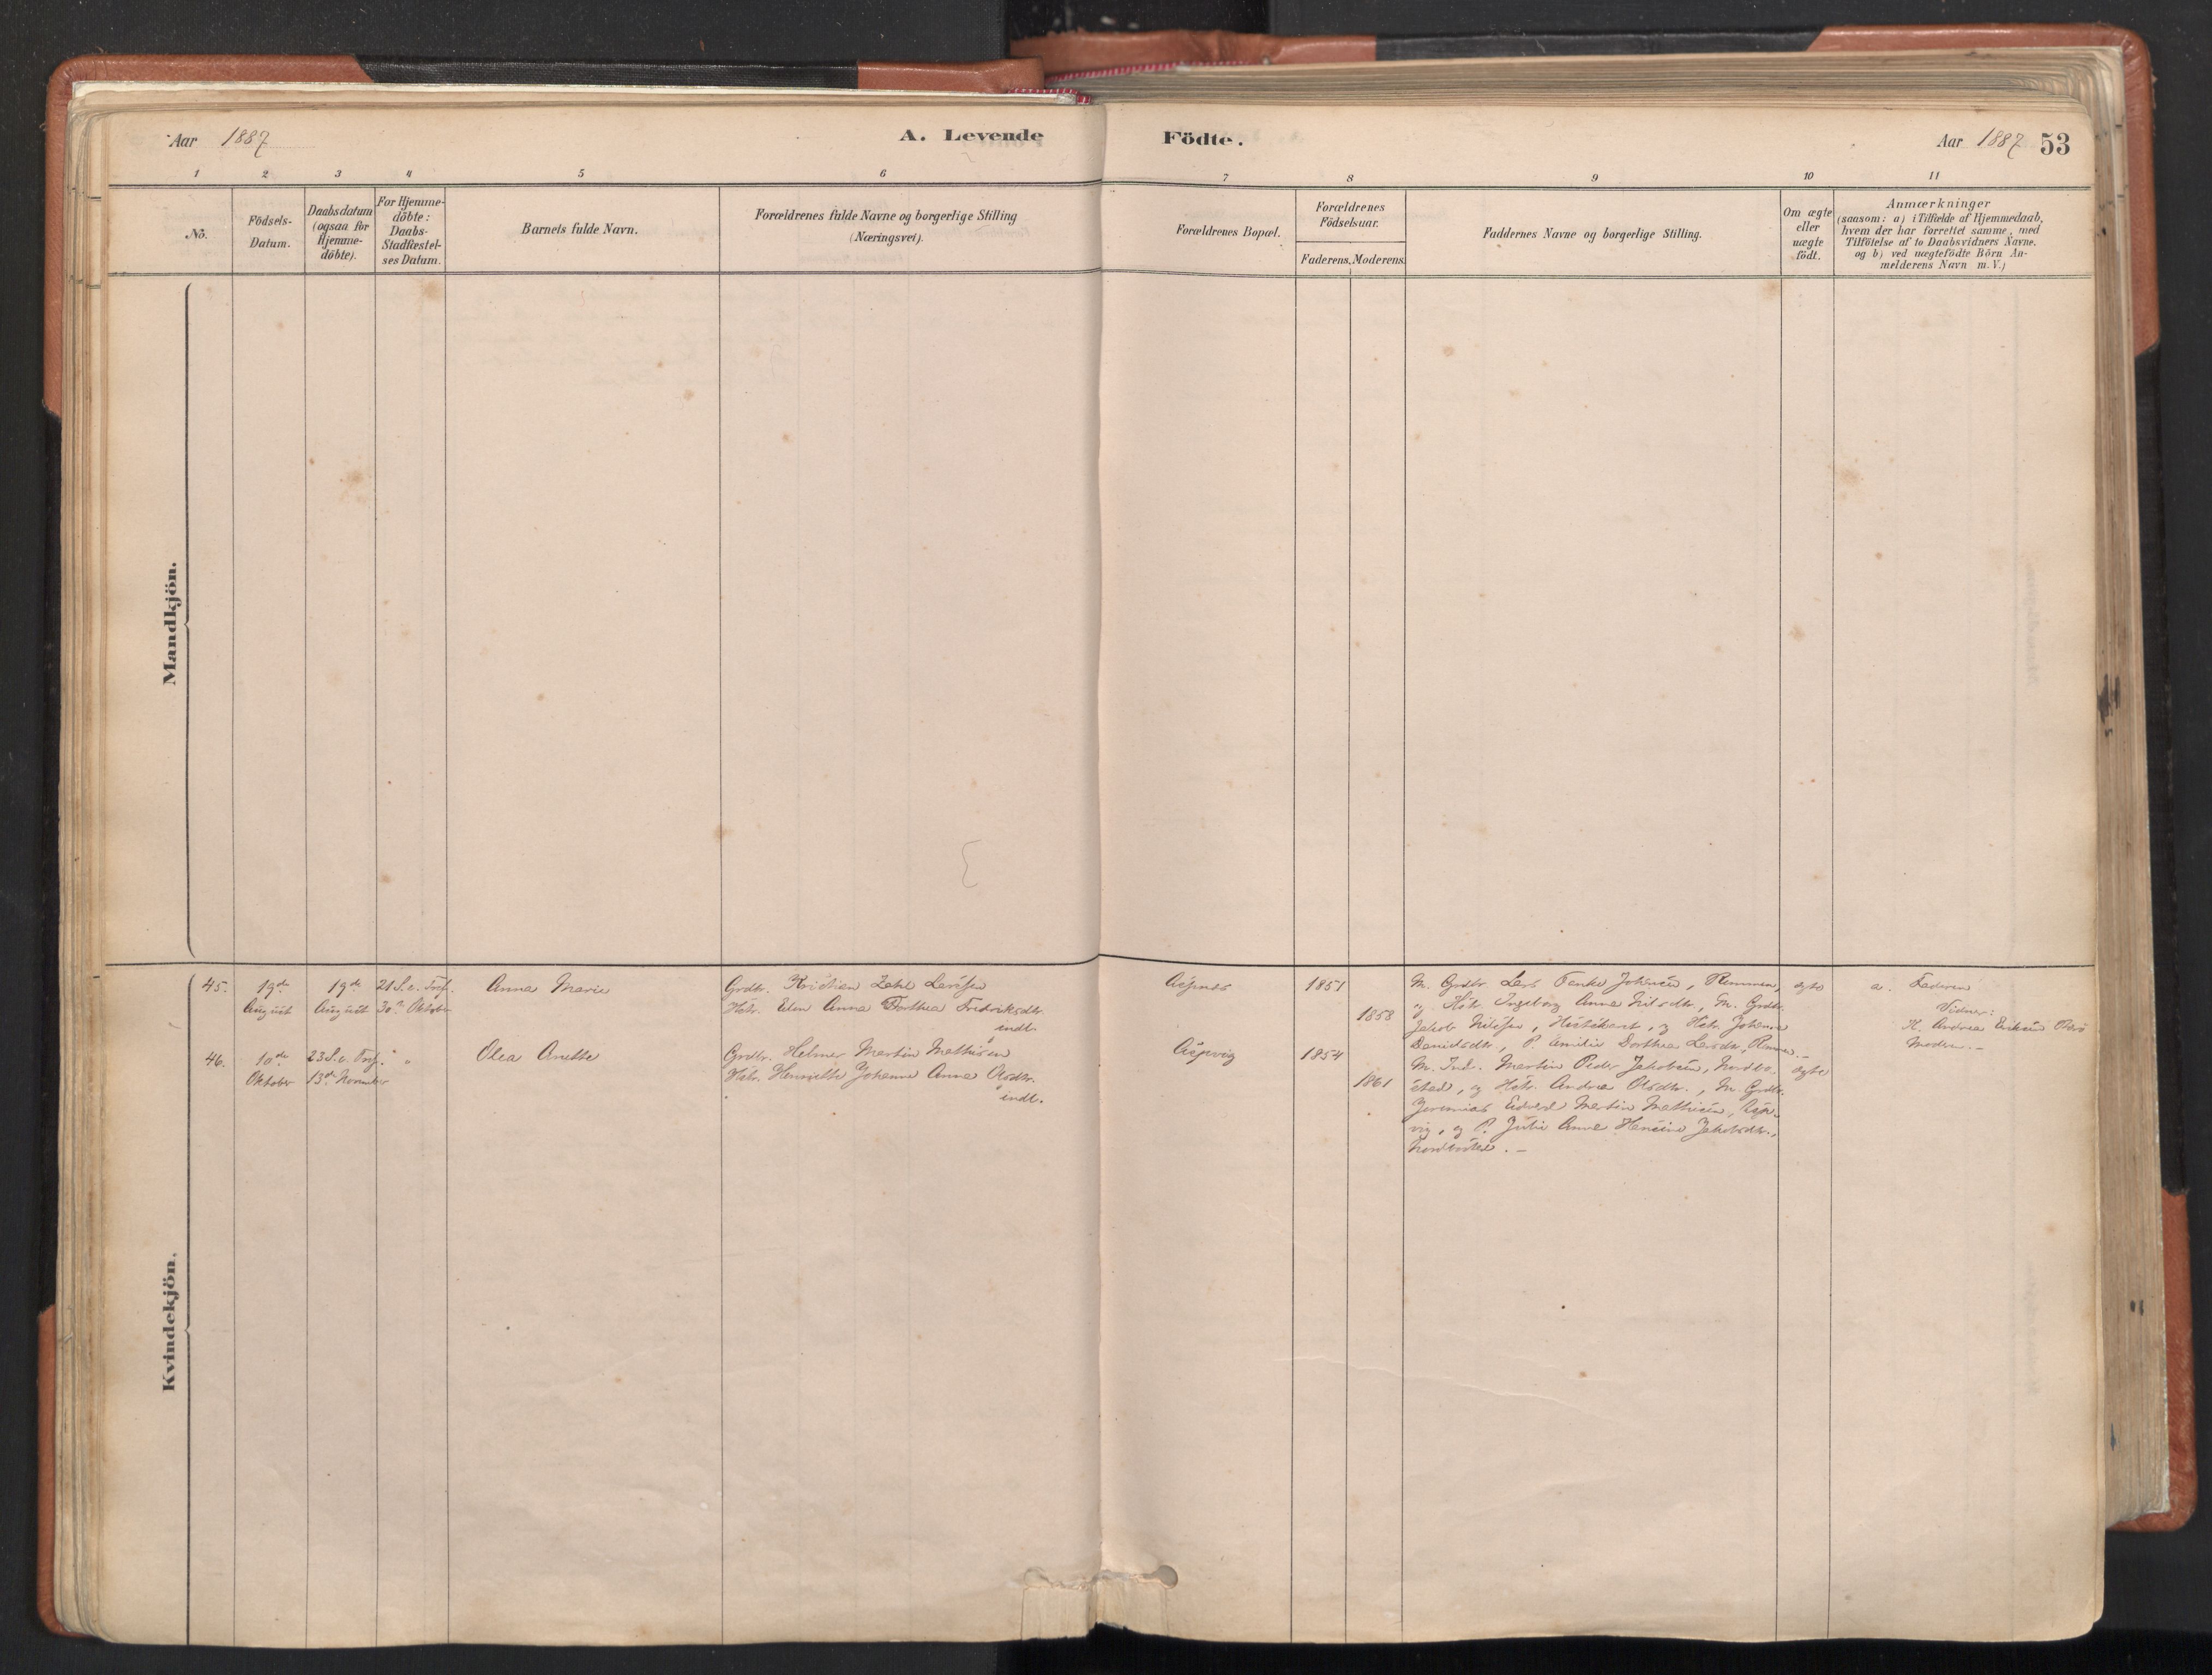 Aar 1887
A. Levende
Födte.
Aar 1887 53
1 2 3 4 5 6 7 8 9 10 11
No.
Födsels-
Datum.
Daabsdatum
(ogsaa for
Hjemme-
döbte).
For Hjemme-
döbte:
Daabs-
Stadfæstel-
ses Datum.
Barnets fulde Navn.
Forældrenes fulde Navne og borgerlige Stilling
(Næringsvei).
Forældrenes Bopæl.
Forældrenes
Födselsaar.
Faderens. Moderens.
Faddernes Navne og borgerlige Stilling.
Om ægte
eller
uægte
födt.
Anmærkninger
(saasom: a) i Tilfælde af Hjemmedaab,
hvem der har forrettet samme, med
Tilföielse af to Daabsvidners Navne.
og b) ved uægtefödte Börn An-
melderens Navn m. V.)
Mandkjön.
Kvindekjön.
45.
19de
August
19de
August
21 S. e. Tref.
30te Oktober
Anna Marie
Grdbr. Kristian Larssen
Hstr. Elen Anna Dorthea Fredriksdtr.
indl.
1851
1858
M. Grdbr. Lars Johnsen, Remmen,
og Hstr. Ingeborg Anna Nilsdtr., M. Grdbr.
Jakob Nilssen, og Hstr. Johanna
Danielsdtr., P. Emilie Dorthea Larsdtr., Remmen. -
ægte
a. Faderen
Vidner:
K. Andrea Eriksen
Moderen. -
46.
10de
Oktober
23 S. e. Tref.
13de November
" "
Olea Anette
Grdbr. Helmer Martin Mathisen
Hstr. Henriette Johanna Anna Olsdtr.
indl.
1854
1861
M. Ind. Martin Peder Jakobsen, Nordbo-
stad, og Hstr. Andrea Olsdtr., M. Grdbr.
Jeremias Edvard Martin Mathisen,
vig, og P. Julie Anna Hansine Jakobsdtr.,
Nordbostad. -
ægte